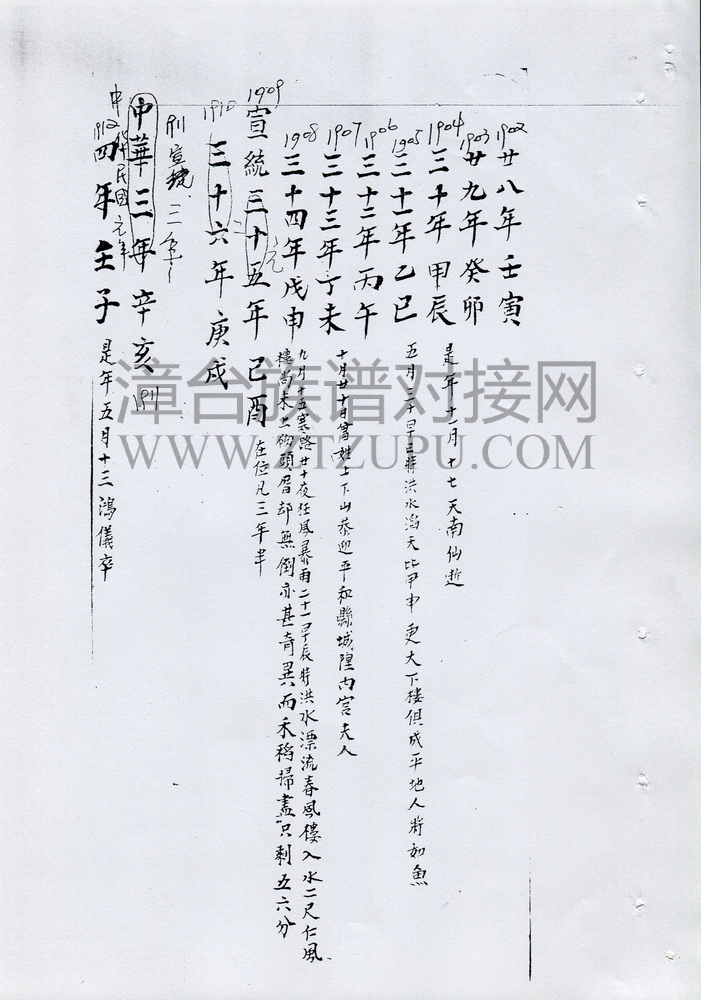 1902
廿八年壬寅
1903
廿九年癸卯
是年十一月十七天南仙逝
1904
三十年甲辰
1905
三十一年乙巳
五月三十早巳時洪水滔天比甲申更大下樓俱成平地人將如魚
1906
三十二年丙午
1907
三十三年丁未
十月廿日 姓上下山恭迎平和縣城隍內宮夫人
1908
三十四年戊申
九月十五寒路廿十夜狂風暴雨二十一早辰時洪水漂流春風樓入水二尺仁風
樓尚未上 頭厝部無倒亦甚奇異而禾稻掃盡只剩五六分
1909
宣統三十五年己酉
元
在位凡三年半
1910
三十六年庚戌
二
宣統三年
中華三年辛亥
1911
中華民國元年
1912
四年壬子
是年五月十三鴻儀卒
漳台族谱对接网
WWW.ZTZUPU.COM